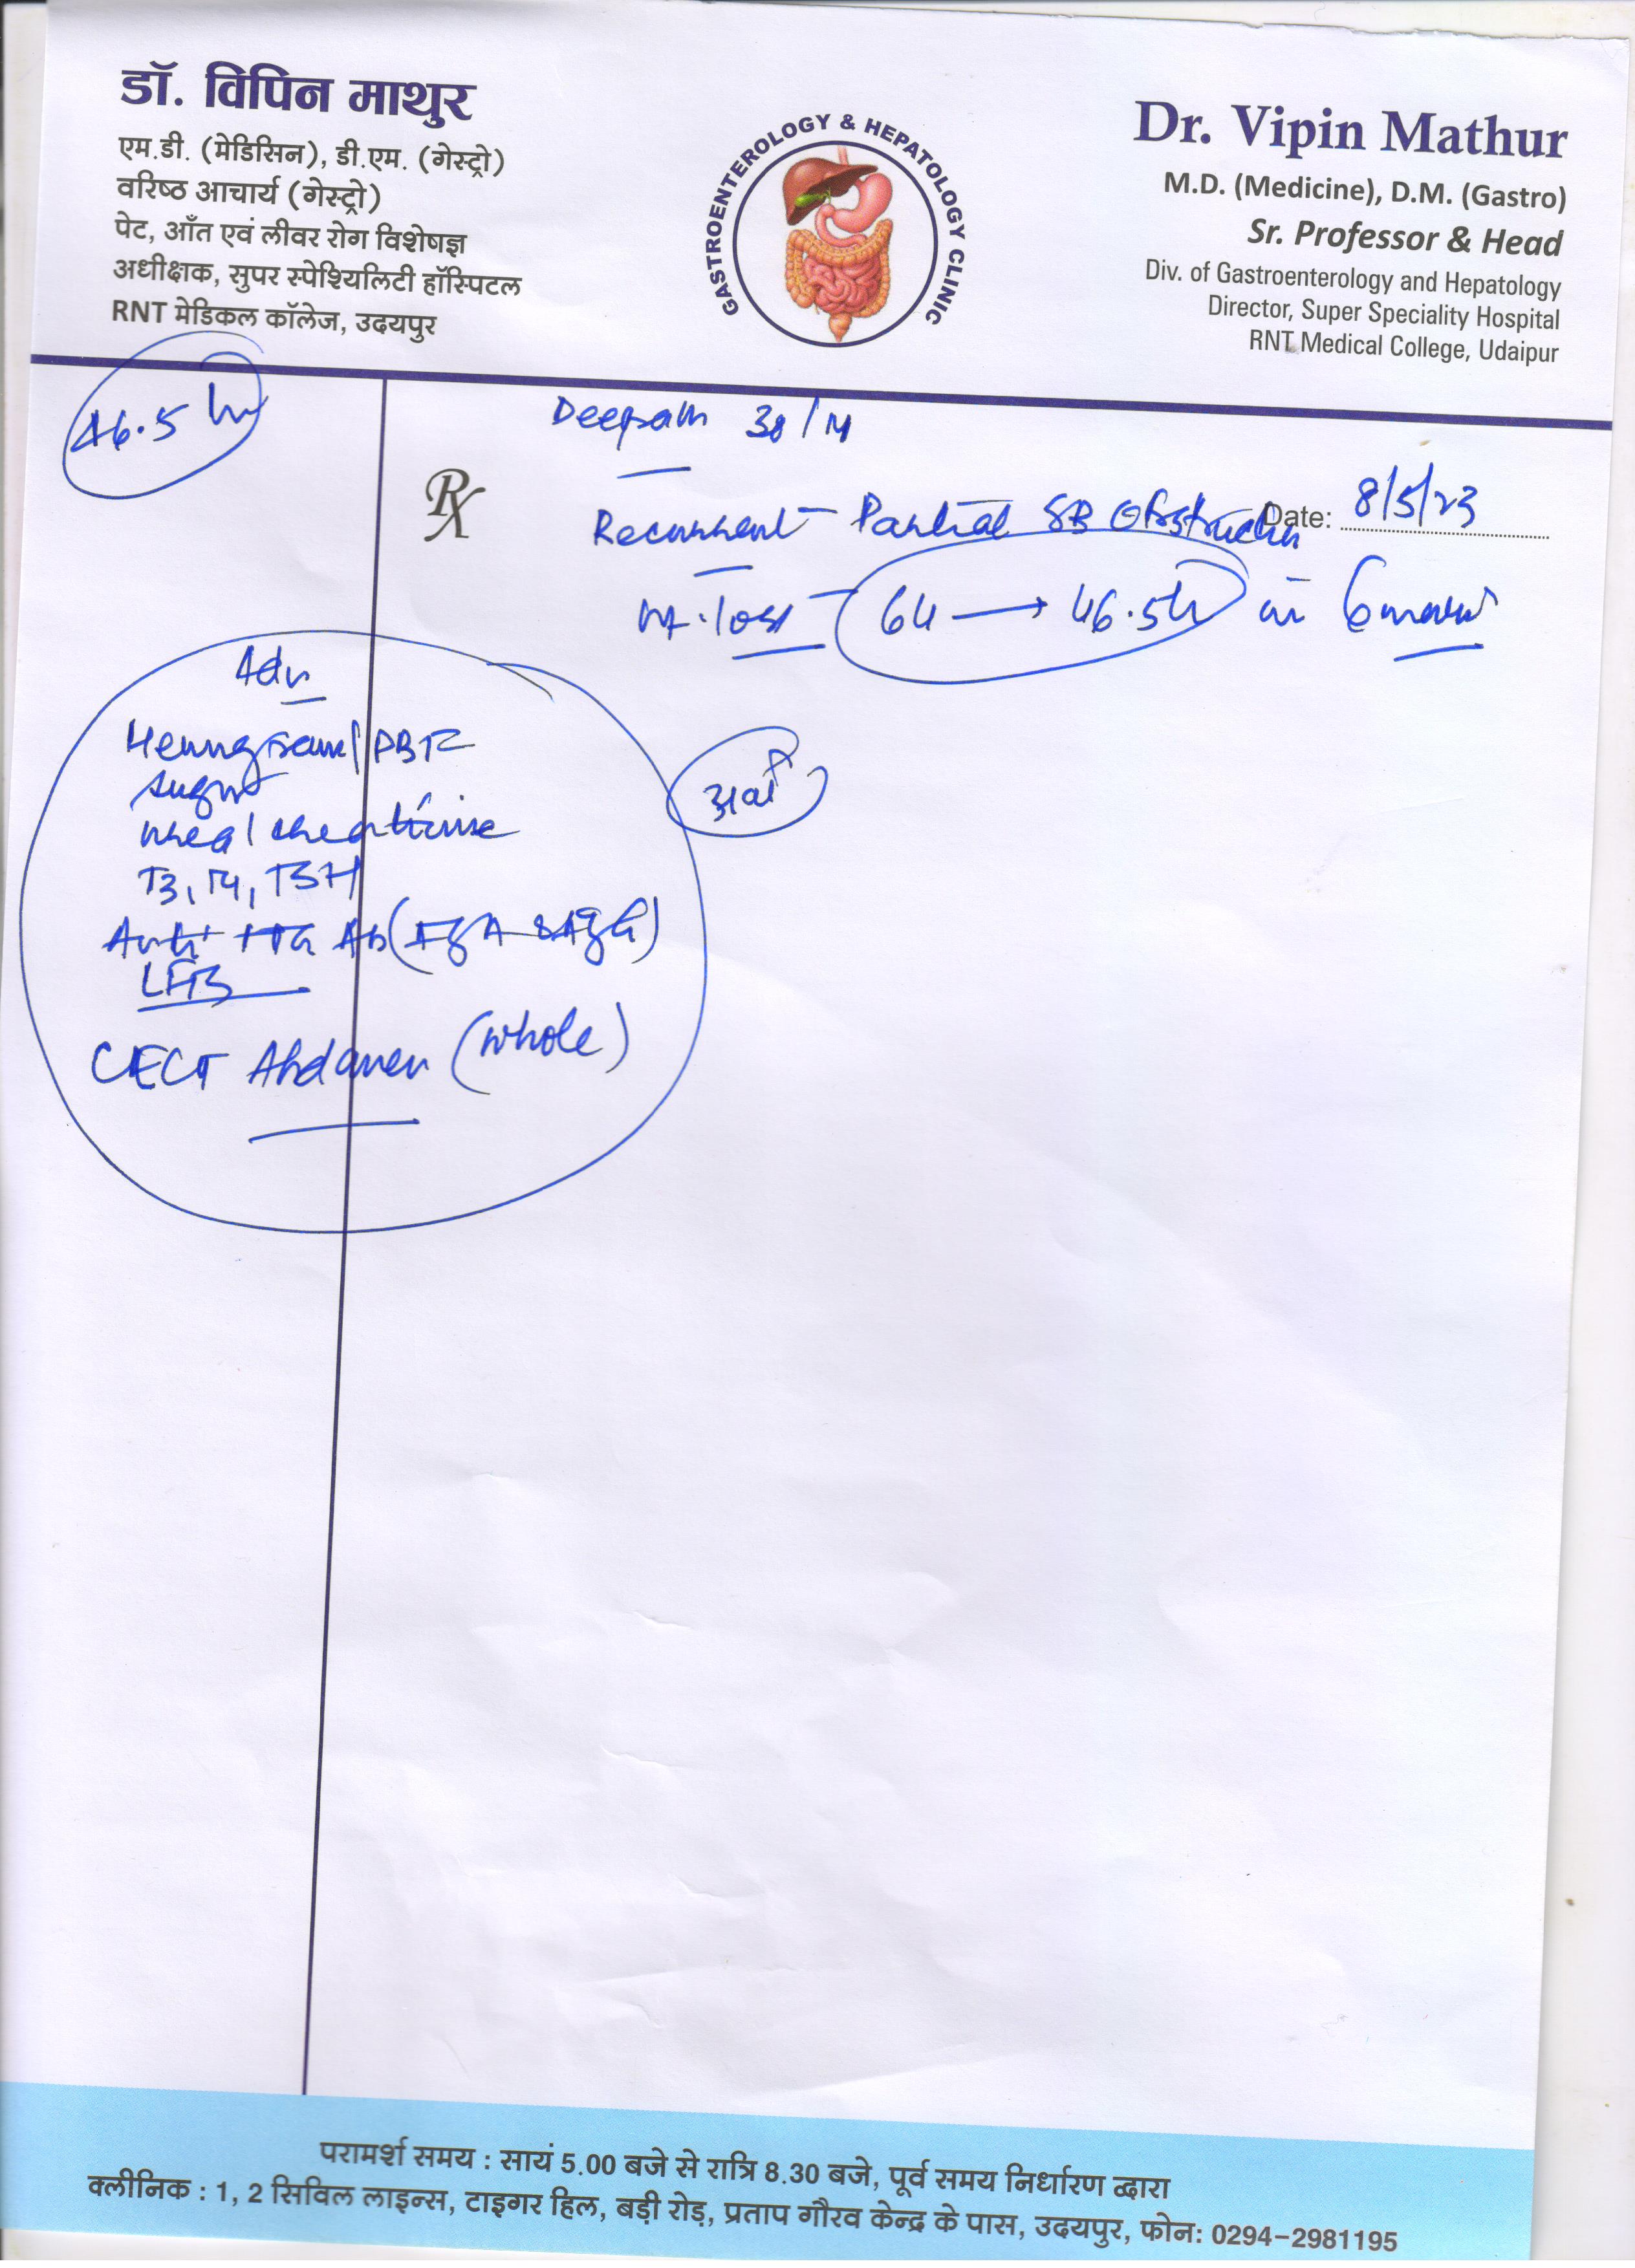 डॉ. विपिन माथुर
एम.डी. (मेडिसिन), डी.एम. (गेस्ट्रो)
वरिष्ठ आचार्य (गेस्ट्रो)
पेट, आँत एवं लीवर रोग विशेषज्ञ
अधीक्षक, सुपर स्पेश्यिलिटी हॉस्पिटल
RNT मेडिकल कॉलेज, उदयपुर
GASTROENTEROLOGY & HEPATOLOGY CLINIC
Dr. Vipin Mathur
M.D. (Medicine), D.M. (Gastro)
Sr. Professor & Head
Div. of Gastroenterology and Hepatology
Director, Super Speciality Hospital
RNT Medical College, Udaipur
46.5
38/M
Rx
Date: 8/5/23
Recurrent Partial SB Obstruction
wt. loss 64 → 46.5 in 6
Adv
Hemogram/PBF
Sugar
Urea/creatinine
T3, T4, TSH
Anti tTG Ab (IgA & IgG)
CECT Abdomen (whole)
परामर्श समय : सायं 5.00 बजे से रात्रि 8.30 बजे, पूर्व समय निर्धारण द्वारा
क्लीनिक : 1, 2 सिविल लाइन्स, टाइगर हिल, बड़ी रोड़, प्रताप गौरव केन्द्र के पास, उदयपुर, फोन: 0294-2981195